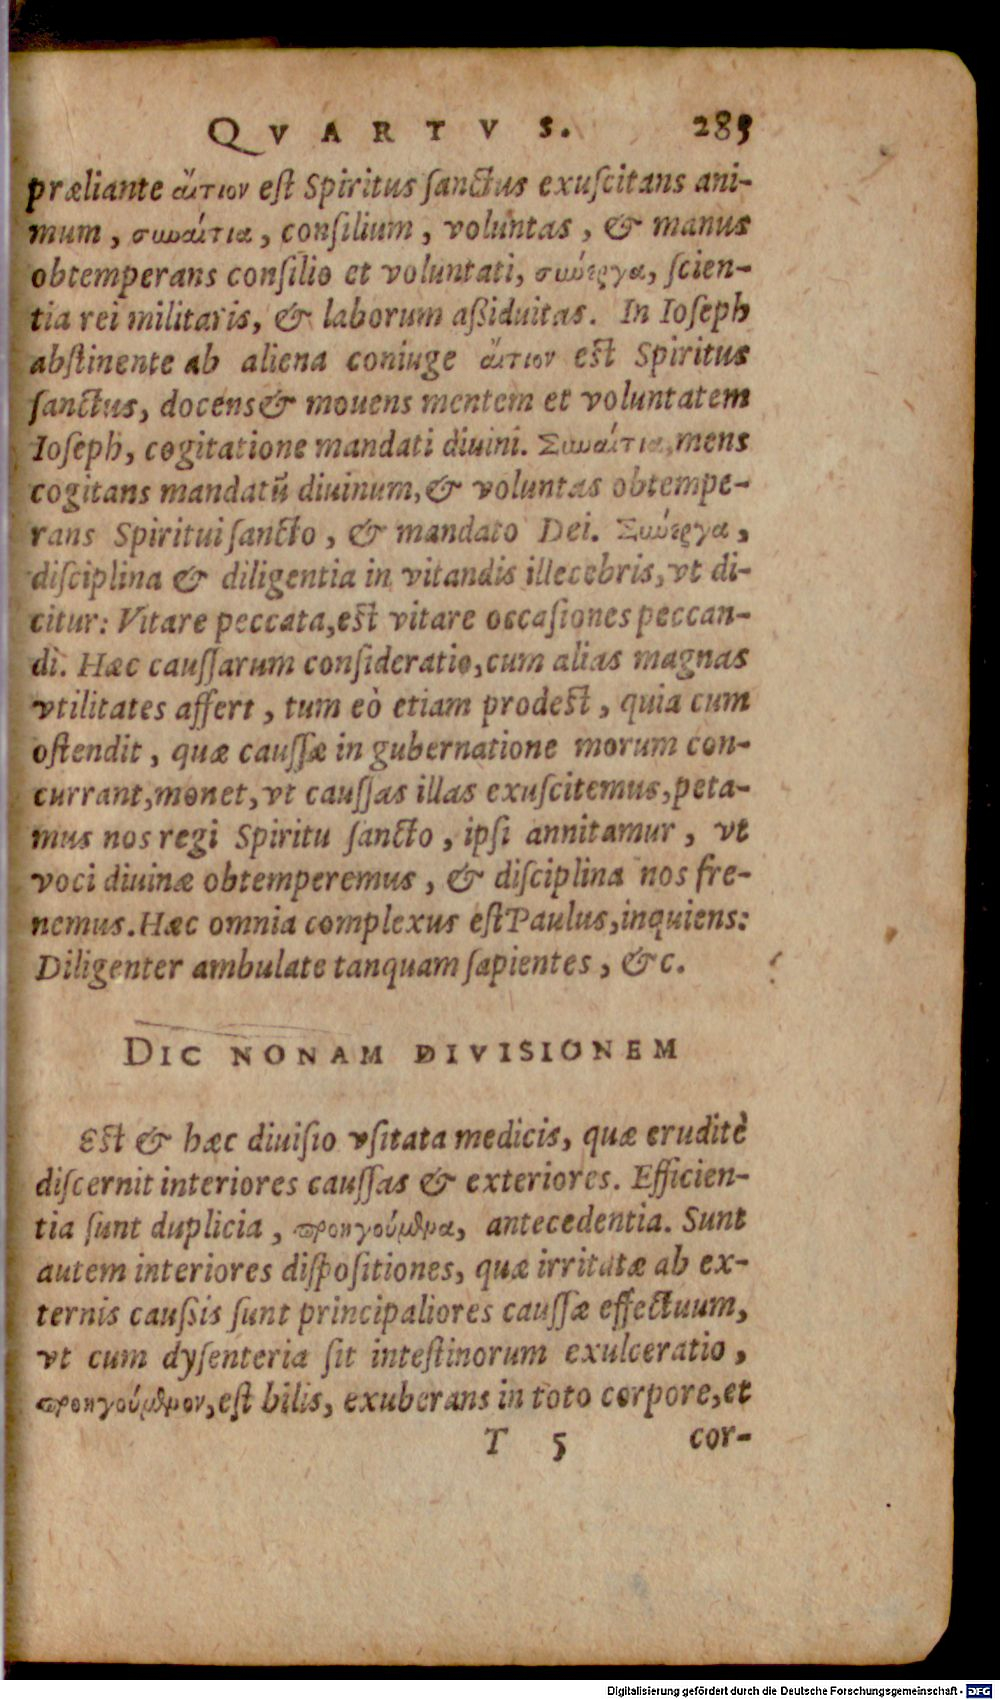 QVARTVS. 285
præliante αἴτιον est Spiritus ſanctus exuſcitans ani-
mum, συναίτια, conſilium, voluntas, & manus
obtemperans conſilio et voluntati, συνέργα, ſcien-
tia rei militaris, & laborum aßiduitas. In Ioſeph
abſtinente ab aliena coniuge αἴτιον est Spiritus
ſanctus, docens & mouens mentem et voluntatem
Ioſeph, cogitatione mandati diuini. Συναίτια, mens
cogitans mandatū diuinum, & voluntas obtempe-
rans Spiritui ſancto, & mandato Dei. Συνέργα,
diſciplina & diligentia in vitandis illecebris, vt di-
citur: Vitare peccata, est vitare occaſiones peccan-
di. Hæc cauſſarum conſideratio, cum alias magnas
vtilitates affert, tum eò etiam prodest, quia cum
oſtendit, quæ cauſſæ in gubernatione morum con-
currant, monet, vt cauſſas illas exuſcitemus, peta-
mus nos regi Spiritu ſancto, ipſi annitamur, vt
voci diuinæ obtemperemus, & diſciplina nos fre-
nemus. Hæc omnia complexus eſt Paulus, inquiens:
Diligenter ambulate tanquam ſapientes, &c.
DIC NONAM DIVISIONEM
Est & hæc diuiſio vſitata medicis, quæ eruditè
diſcernit interiores cauſſas & exteriores. Efficien-
tia ſunt duplicia, προηγούμενα, antecedentia. Sunt
autem interiores diſpoſitiones, quæ irritatæ ab ex-
ternis cauſsis ſunt principaliores cauſſæ effectuum,
vt cum dyſenteria ſit inteſtinorum exulceratio,
προηγούμενον, eſt bilis, exuberans in toto corpore, et
T 5 cor-
Digitalisierung gefördert durch die Deutsche Forschungsgemeinschaft - DFG